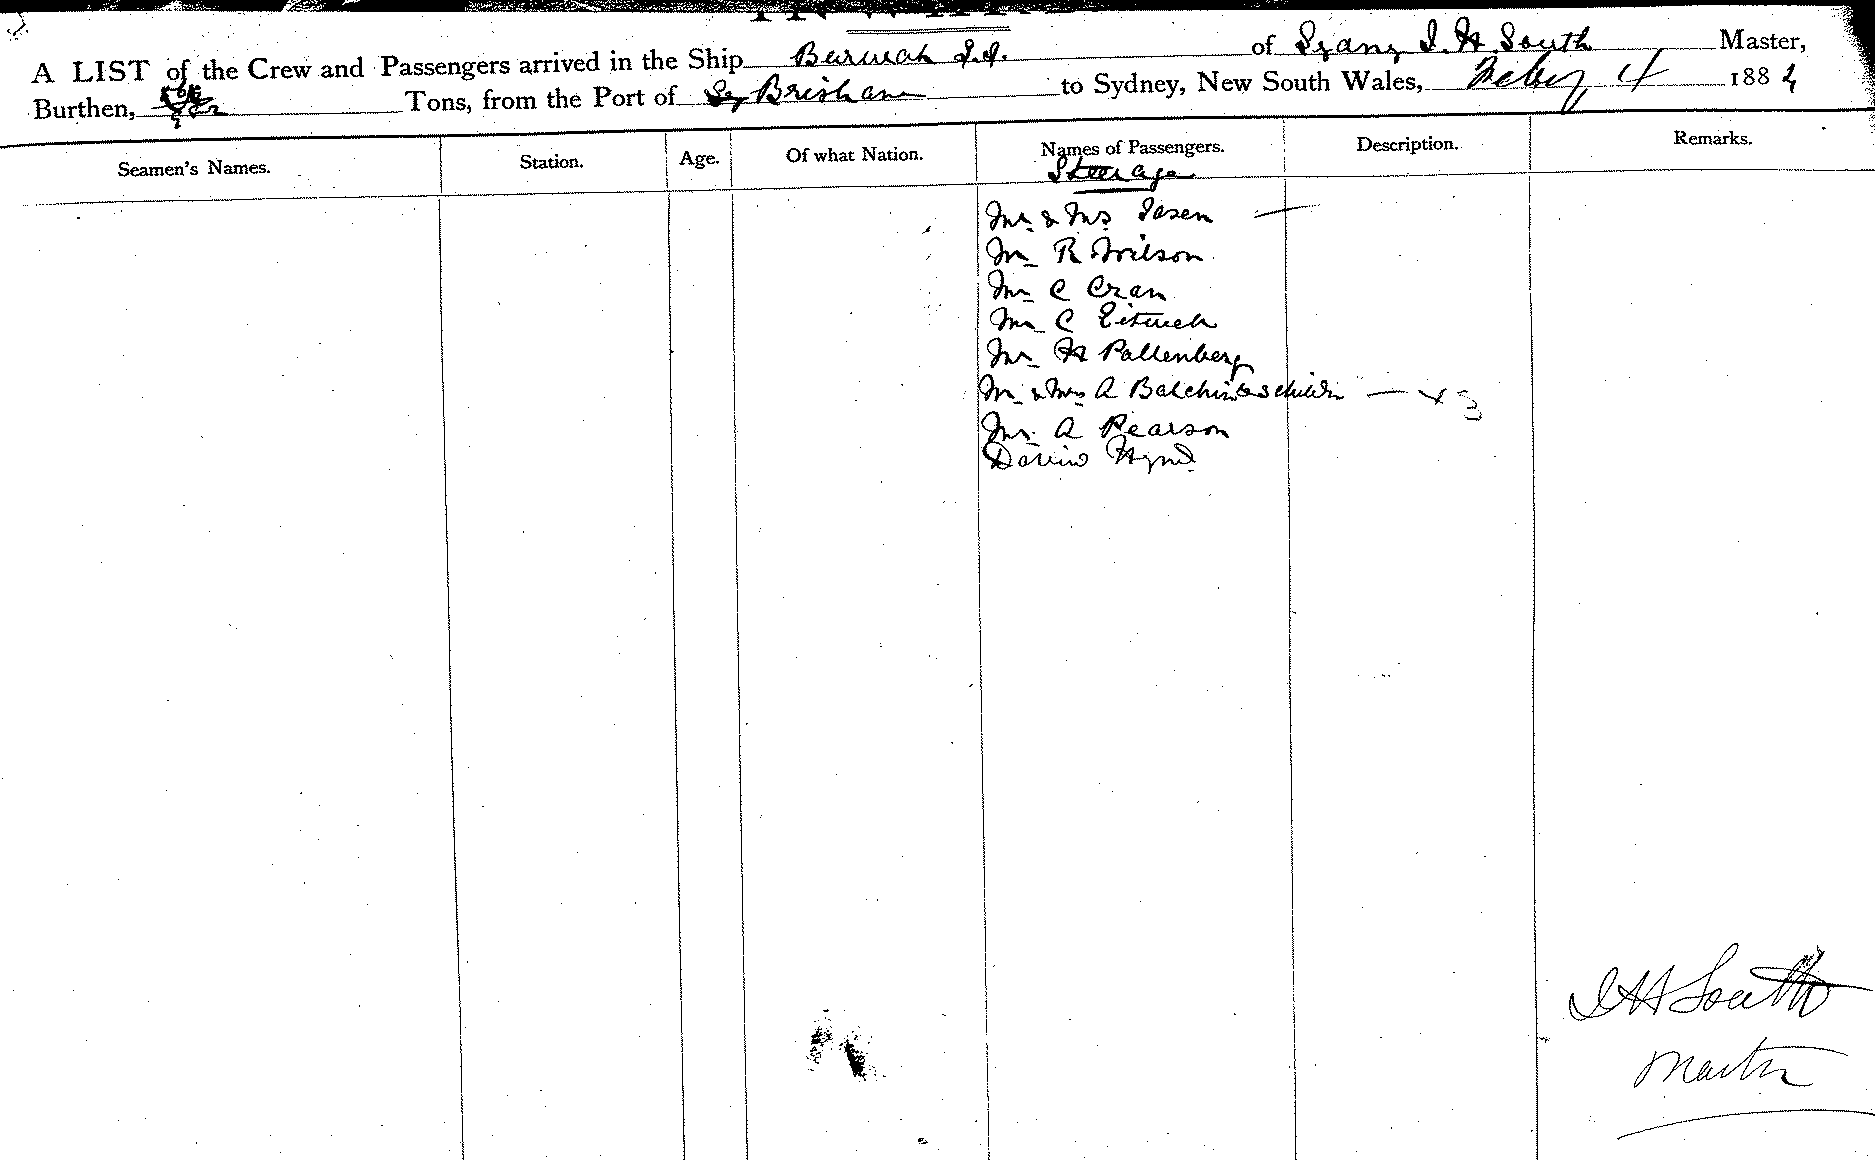 A LIST of the Crew and Passengers arrived in the Ship Burwah S.S. of Syany I. H. South Master,
Burthen, Tons, from the Port of Brisbane to Sydney, New South Wales, Feby 4 188
Seamen's Names. Station. Age. Of what Nation. Names of Passengers. Description. Remarks.
Steerage
Mr & Mrs —
Mr R Wilson
Mr C Cran
Mr C
Mr H Pallenberg
Mr & Mrs A Balchin & 3 childn — x 3
Mr A Pearson
I H South
Master